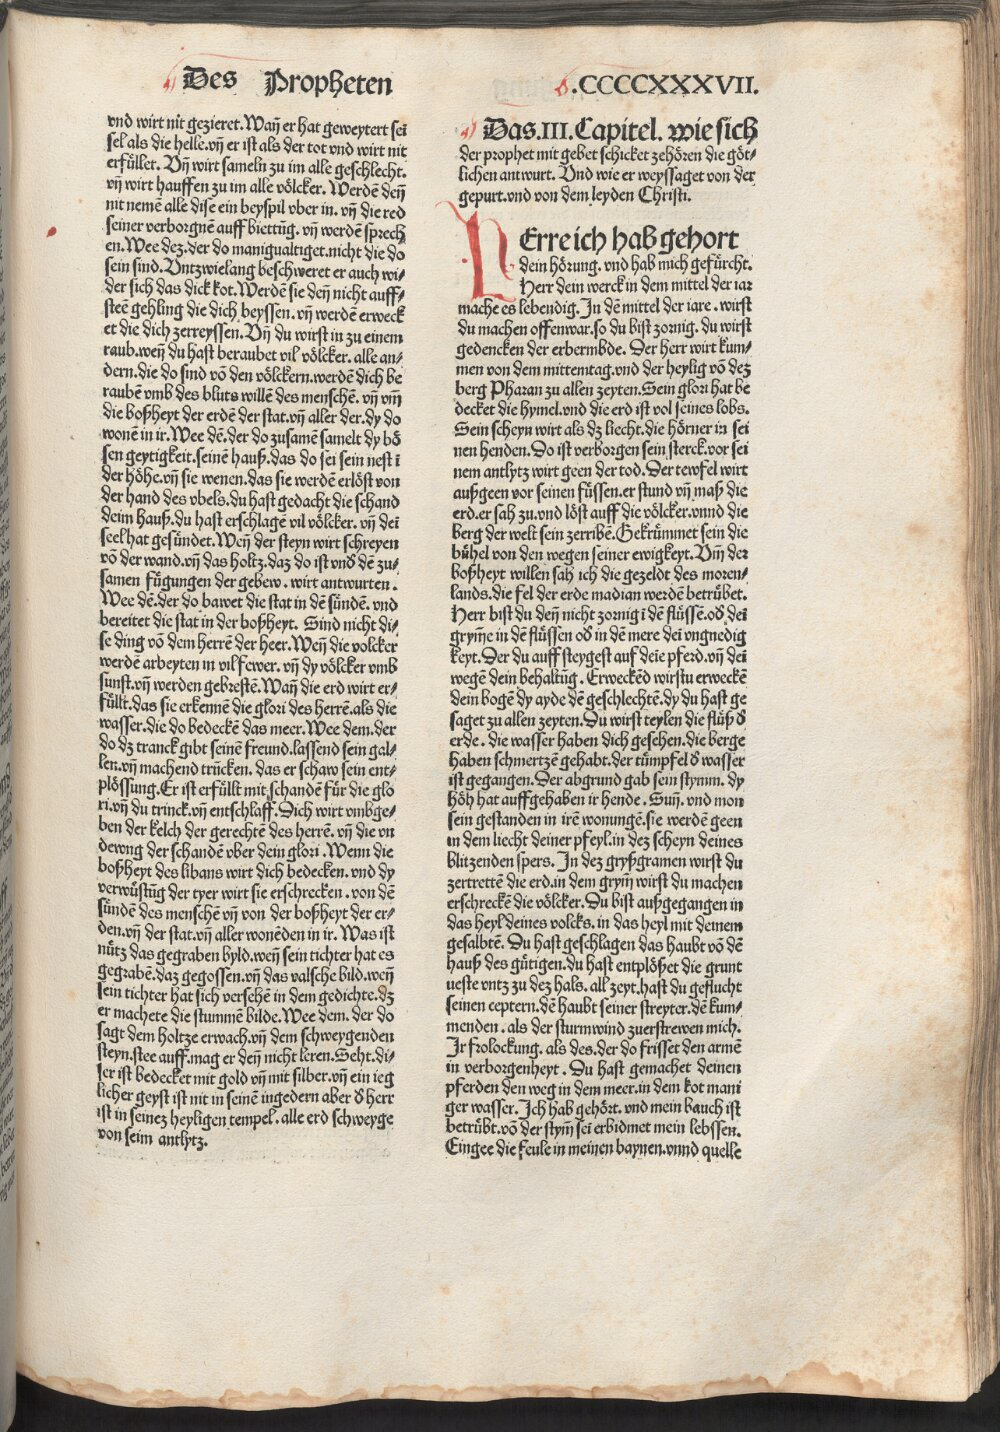 Des Propheten
.CCCCXXXVII.
vnd wirt nit gezieret. Wañ er hat geweytert sei
sel als die helle. vñ er ist als der tot vnd wirt nit
erfüllet. Vñ wirt sameln zu im alle geschlecht.
vñ wirt hauffen zu im alle völcker. Werdē deñ
nit nemē alle dise ein beyspil vber in. vñ die red
seiner verborgnē auff biettūg. vñ werdē sprech
en. Wee dez. der do manigualtiget. nicht die do
sein sind. Vntzwielang beschweret er auch wi⸗
der sich das dick kot. Werdē sie deñ nicht auff⸗
steē gehling die dich beyssen. vñ werdē erweck
et die dich zerreyssen. Vñ du wirst in zu einem
raub. weñ du hast beraubet vil völcker. alle an⸗
dern. die do sind vō den völckern. werdē dich be
raubē vmb des bluts willē des menschē. vñ vm̄
die boßheyt der erdē der stat. vñ aller der. dy do
wonē in ir. Wee dē. der do zusamē samelt dy bö
sen geytigkeit. seinē hauß. das do sei sein nest ī
der höhe. vñ sie wenen. das sie werdē erlöst von
der hand des vbels. du hast gedacht die schand
deim hauß. du hast erschlagē vil völcker. vñ dei
seel hat gesündet. Weñ der steyn wirt schreyen
vō der wand. vñ das holtz. daz do ist vnd̄ dē zu⸗
samen fügungen der gebew. wirt antwurten.
Wee dē. der do bawet die stat in dē sündē. vnd
bereitet die stat in der boßheyt. Sind nicht di⸗
se ding vō dem herrē der heer. Weñ die völcker
werdē arbeyten in vil fewer. vñ dy völcker vmb
sunst. vñ werden gebrestē. Wañ die erd wirt er⸗
füllt. das sie erkennē die glori des herrē. als die
wasser. die do bedeckē das meer. Wee dem. der
do dz tranck gibt seinē freund. lassend sein gal⸗
len. vñ machend trūcken. das er schaw sein ent⸗
plössung. Er ist erfüllt mit schandē für die glo
ri. vñ du trinck. vñ entschlaff. Dich wirt vmbge⸗
ben der kelch der gerechtē des herrē. vñ die vn
dewng der schandē vber dein glori. Wenn die
boßheyt des libans wirt dich bedecken. vnd dy
verwüstūg der tyer wirt sie erschrecken. von dē
sündē des menschē vñ von der boßheyt der er⸗
den. vñ der stat. vñ aller wonēden in ir. Was ist
nütz das gegraben byld. weñ sein tichter hat es
gegrabē. daz gegossen. vñ das valsche bild. weñ
sein tichter hat sich versehē in dem gedichte. dz
er machete die stummē bilde. Wee dem. der do
sagt dem holtze erwach. vñ dem schweygenden
steyn. stee auff. mag er deñ nicht leren. Seht. di⸗
ser ist bedecket mit gold vñ mit silber. vñ ein ieg
licher geyst ist nit in seinē ingedern aber d̄ herr
ist in seinez heyligen tempel. alle erd schweyge
von seim antlytz.
Das .III. Capitel. wie sich
der prophet mit gebet schicket zehören die göt⸗
lichen antwurt. Vnd wie er weyssaget von der
gepurt. vnd von dem leyden Christi.
HErre ich hab gehort
dein hörung. vnd hab mich gefürcht.
Herr dein werck in dem mittel der iar
mache es lebendig. In dē mittel der iare. wirst
du machen offenwar. so du bist zornig. du wirst
gedencken der erbermbde. Der herr wirt kum⸗
men von dem mittemtag. vnd der heylig vō dez
berg Pharan zu allen zeyten. Sein glori hat be
decket die hymel. vnd die erd ist vol seines lobs.
Sein scheyn wirt als dz liecht. die hörner in sei
nen henden. Do ist verborgen sein sterck. vor sei
nem antlytz wirt geen der tod. Der tewfel wirt
außgeen vor seinen füssen. er stund vñ maß die
erd. er sah zu. vnd löst auff die völcker. vnnd die
berg der welt sein zerribē. Gekrümmet sein die
bühel von den wegen seiner ewigkeyt. Vm̄ der
boßheyt willen sah ich die gezeldt des moren⸗
lands. die fel der erde madian werdē betrübet.
Herr bist du deñ nicht zornig ī dē flüssē. od̄ dei
grym̄e in dē flüssen od̄ in dē mere dei vngnedig
keyt. Der du auff steygest auf deīe pferd. vñ dei
wegē dein behaltūg. Erweckēd wirstu erweckē
dein bogē dy ayde dē geschlechtē. dy du hast ge
saget zu allen zeyten. Du wirst teylen die flüß d̄
erde. die wasser haben dich gesehen. die berge
haben schmertzē gehabt. der tümpfel d̄ wasser
ist gegangen. Der abgrund gab sein stymm. dy
höh hat auffgehaben ir hende. Suñ. vnd mon
sein gestanden in irē wonungē. sie werdē geen
in dem liecht deiner pfeyl. in dez scheyn deines
blitzenden spers. In dez gryßgramen wirst du
zertrettē die erd. in dem grym̄ wirst du machen
erschreckē die völcker. Du bist außgegangen in
das heyl deines volcks. in das heyl mit deinem
gesalbtē. Du hast geschlagen das haubt vō dē
hauß des gütigen. du hast entplößet die grunt
ueste vntz zu dez hals. all zeyt. hast du geflucht
seinen ceptern. dē haubt seiner streyter. dē kum⸗
menden. als der sturmwind zuerstrewen mich.
Ir frolockung. als des. der do frisset den armē
in verborgenheyt. Du hast gemachet deinen
pferden den weg in dem meer. in dem kot mani
ger wasser. Ich hab gehört. vnd mein bauch ist
betrübt. vō der stym̄ sei erbidmet mein lebssen.
Eingee die feule in meinen baynen. vnnd quelle